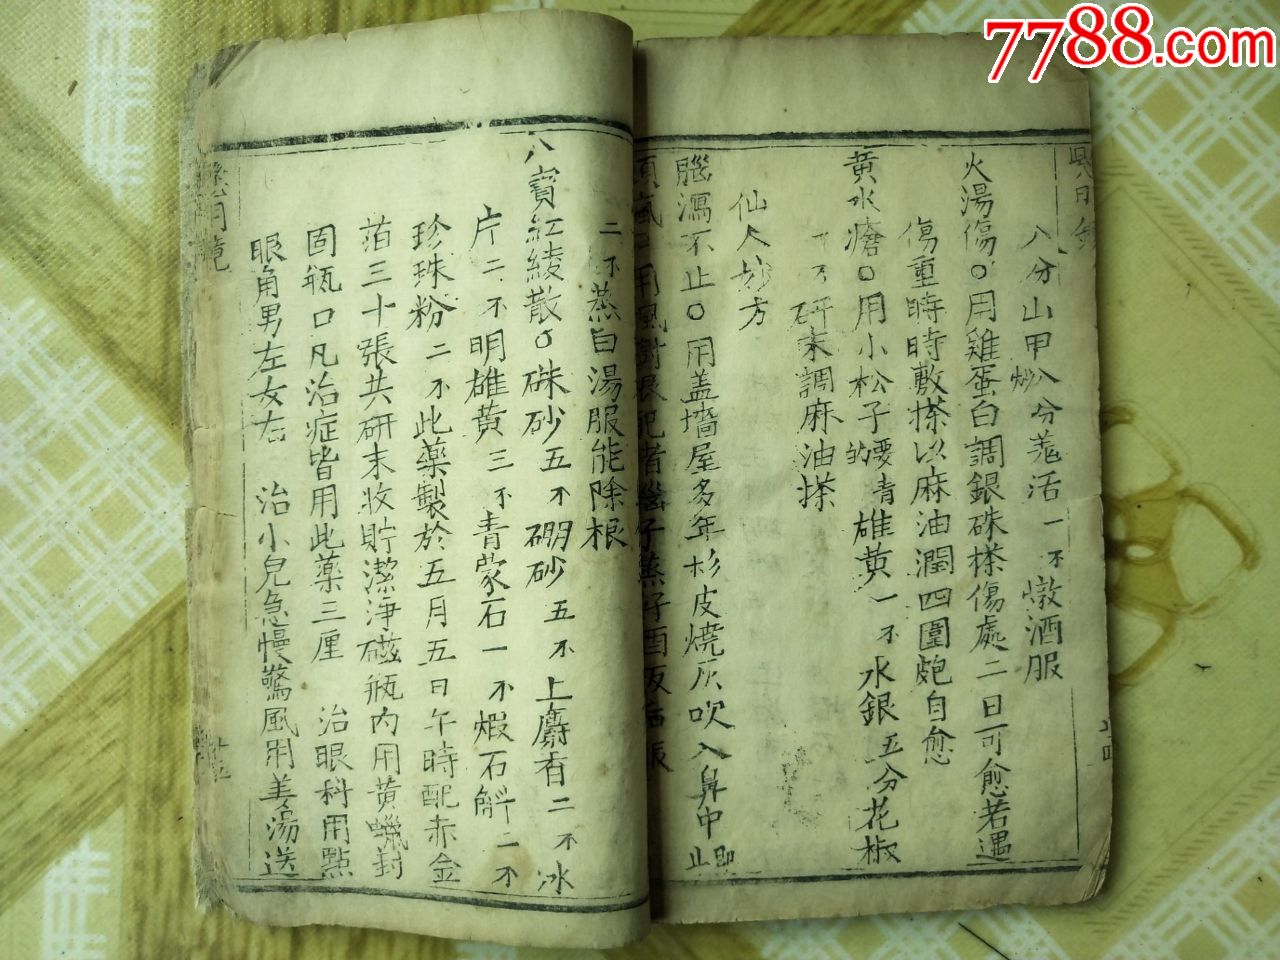 7788.com
八分山甲炒八分羌活一不燉酒服
火湯傷〇用雞蛋白調銀硃搽傷處二日可愈若遇
傷重時時敷搽以麻油潤四圍皰自愈
黄水瘡〇用小松子的要青雄黄一不水銀五分花椒
研末調麻油搽
仙人妙方
腦瀉不止〇用盖墻屋多年杉皮燒灰吹入鼻中即止
二不蒸白湯服能除根
八寳紅綾散〇硃砂五不硼砂五不上麝香二不冰
片二不明雄黄三不青蒙石一不煆石觧二不
珍珠粉二不此藥製於五月五日午時配赤金
箔三十張共研末收貯潔淨磁瓶内用黄蠟封
固瓶口凡治症皆用此藥三厘 治眼科用點
眼角男左女右 治小兒急慢驚風用姜湯送
十五